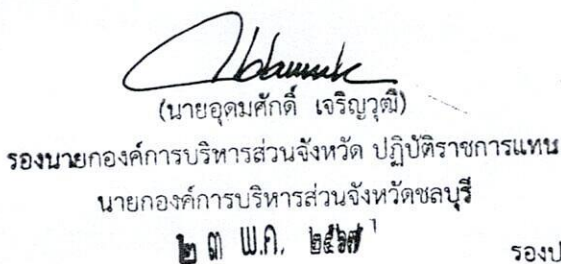 (นายอุดมศักดิ์ เจริญวุฒิ)
รองนายกองค์การบริหารส่วนจังหวัด ปฏิบัติราชการแทน
นายกองค์การบริหารส่วนจังหวัดชลบุรี
๒ ๓ พ.ค. ๒๕๖๗
รองป